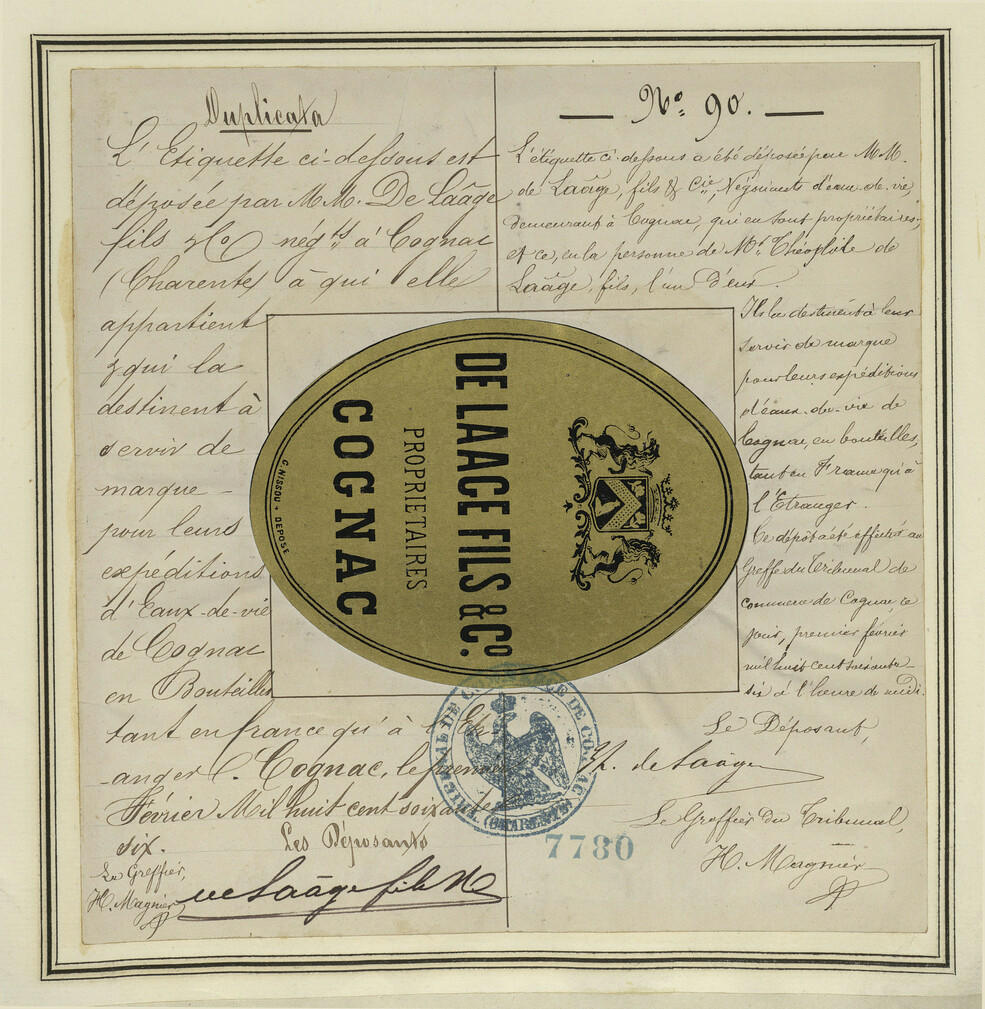 Duplicata
L'Etiquette ci-dessous est
déposée par M.M. De Laâge
fils & Co négts à Cognac
(Charente) à qui elle
appartient
& qui la
destinent à
servir de
marque
pour leurs
expéditions
d'Eaux-de-vie
de Cognac
en Bouteilles
tant en france qu'à l'Etr
anger. Cognac, le premier
Février Mil huit cent soixante
six.
Les Déposants
Le Greffier,
H. Magnier
de Laâge fils & Co
No. 90.
L'étiquette ci-dessous a été déposée par M.M.
de Laâge, fils & Cie, Négociants d'eau-de-vie,
demeurant à Cognac, qui en sont propriétaires,
et ce, en la personne de Mr. Théophile de
Laâge, fils, l'un d'eux.
Ils la destinent à leur
servir de marque
pour leurs expéditions
d'eaux-de-vie de
Cognac, en bouteilles,
tant en France qu'à
l'Etranger.
Ce dépôt a été effectué au
Greffe du Tribunal de
commerce de Cognac, ce
jour, premier février
mil huit cent soixante-
six à l'heure de midi.
Le Déposant,
Th. de Laâge
Le Greffier du Tribunal,
H. Magnier
DE LAAGE FILS & Co.
PROPRIETAIRES
COGNAC
C. NISSOU - DEPOSE
TRIBUNAL DE COMMERCE DE COGNAC
(CHARENTE)
7780